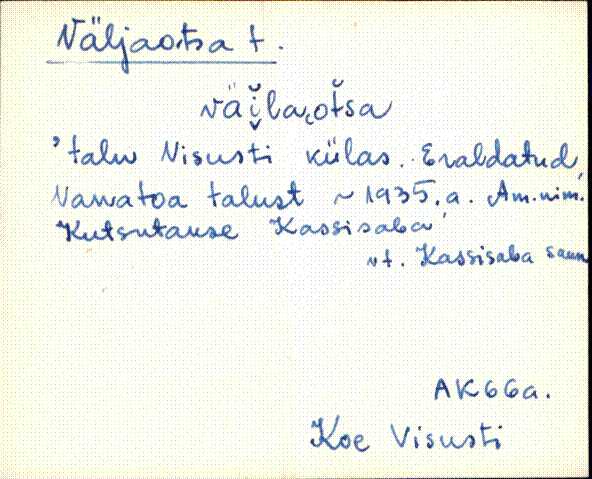 Väljaotsa t.
väĭlaot̆sa
'talu Visusti külas. Eraldatud
Vanatoa talust ~ 1935. a. Am. nim.
Kutsutause Kassisaba'
vt. Kassisaba saun
AK66a.
Koe Visusti